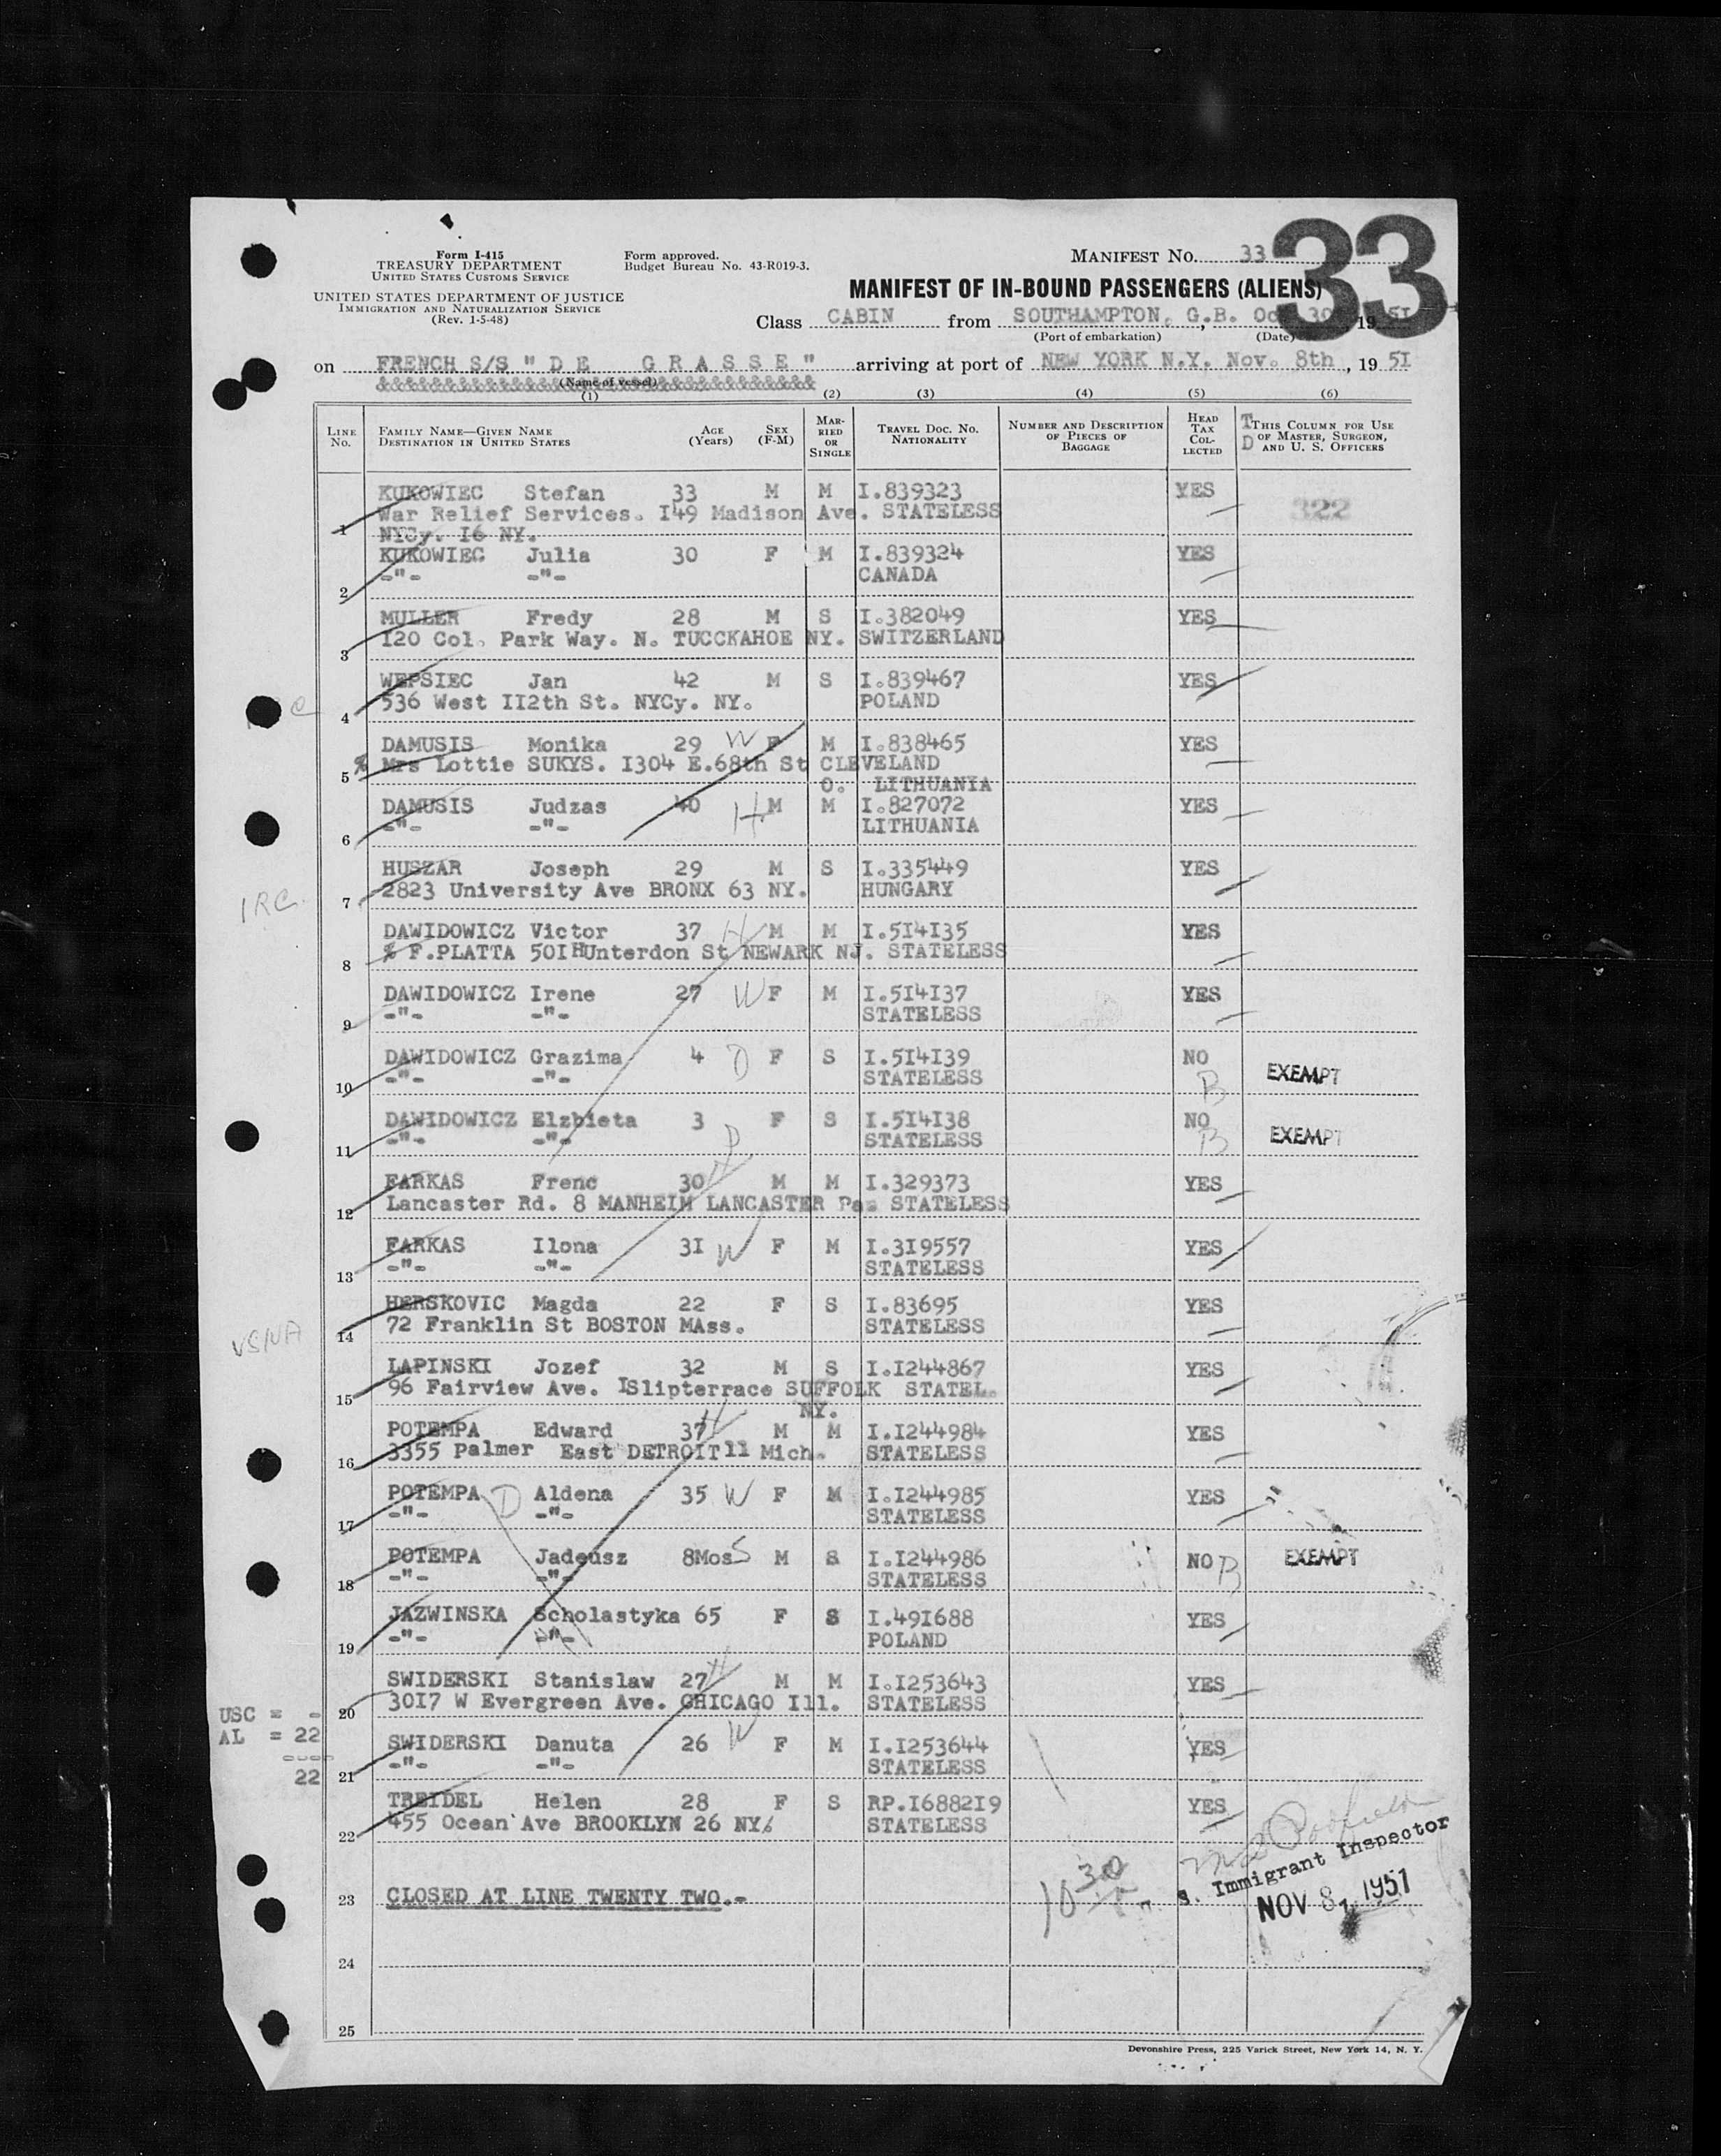 Form I-415
TREASURY DEPARTMENT
UNITED STATES CUSTOMS SERVICE
UNITED STATES DEPARTMENT OF JUSTICE
IMMIGRATION AND NATURALIZATION SERVICE
(Rev. 1-5-48)
Form approved.
Budget Bureau No. 43-R019-3.
MANIFEST No. 33
33
MANIFEST OF IN-BOUND PASSENGERS (ALIENS)
Class CABIN from SOUTHAMPTON, G.B. Oct 30, 1951
(Port of embarkation) (Date)
on FRENCH S/S " D E G R A S S E " arriving at port of NEW YORK N.Y. Nov. 8th, 19 51
(Name of vessel)
(1) (2) (3) (4) (5) (6)
LINE No. FAMILY NAME—GIVEN NAME DESTINATION IN UNITED STATES AGE (Years) SEX (F-M) MARRIED OR SINGLE TRAVEL DOC. NO. NATIONALITY NUMBER AND DESCRIPTION OF PIECES OF BAGGAGE HEAD TAX COLLECTED THIS COLUMN FOR USE OF MASTER, SURGEON, AND U. S. OFFICERS
KUKOWIEC Stefan 33 M M I.839323 YES 322
War Relief Services. I49 Madison Ave. STATELESS
1 NYCy. I6 NY.
KUKOWIEC Julia 30 F M I.839324 YES
-"- -"- CANADA
2
MULLER Fredy 28 M S I.382049 YES
I20 Col. Park Way. N. TUCCKAHOE NY. SWITZERLAND
3
WEPSIEC Jan 42 M S I.839467 YES
536 West II2th St. NYCy. NY. POLAND
4
DAMUSIS Monika 29 W F M I.838465 YES
5 % Mrs Lottie SUKYS. I304 E.68th St CLEVELAND
O. LITHUANIA
DAMUSIS Judzas 40 H M M I.827072 YES
-"- -"- LITHUANIA
6
HUSZAR Joseph 29 M S I.335449 YES
2823 University Ave BRONX 63 NY. HUNGARY
7 IRC.
DAWIDOWICZ Victor 37 H M M I.5I4I35 YES
% F.PLATTA 50I HUnterdon St NEWARK NJ. STATELESS
8
DAWIDOWICZ Irene 27 W F M I.5I4I37 YES
-"- -"- STATELESS
9
DAWIDOWICZ Grazima 4 D F S I.5I4I39 NO
-"- -"- STATELESS B EXEMPT
10
DAWIDOWICZ Elzbieta 3 D F S I.5I4I38 NO
-"- -"- STATELESS B EXEMPT
11
FARKAS Frenc 30 H M M I.329373 YES
Lancaster Rd. 8 MANHEIM LANCASTER Pa. STATELESS
12
FARKAS Ilona 3I W F M I.3I9557 YES
-"- -"- STATELESS
13
HERSKOVIC Magda 22 F S I.83695 YES
72 Franklin St BOSTON MAss. STATELESS
14 VSNA
LAPINSKI Jozef 32 M S I.I244867 YES
96 Fairview Ave. ISlipterrace SUFFOLK STATEL.
15 NY.
POTEMPA Edward 37 H M M I.I244984 YES
3355 Palmer East DETROIT 11 Mich. STATELESS
16
POTEMPA D Aldena 35 W F M I.I244985 YES
-"- -"- STATELESS
17
POTEMPA Jadeusz 8Mos S M S I.I244986 NO B EXEMPT
-"- -"- STATELESS
18
JAZWINSKA Scholastyka 65 F S I.49I688 YES
-"- -"- POLAND
19 M
SWIDERSKI Stanislaw 27 H M M I.I253643 YES
30I7 W Evergreen Ave. CHICAGO Ill. STATELESS
20
USC = -
AL = 22
----
22
SWIDERSKI Danuta 26 W F M I.I253644 YES
-"- -"- STATELESS
21
TREIDEL Helen 28 F S RP.I6882I9 YES
455 Ocean Ave BROOKLYN 26 NY. STATELESS
22
23 CLOSED AT LINE TWENTY TWO.-
10 30
S. Immigrant Inspector
NOV 8, 1951
24
25
Devonshire Press, 225 Varick Street, New York 14, N. Y.